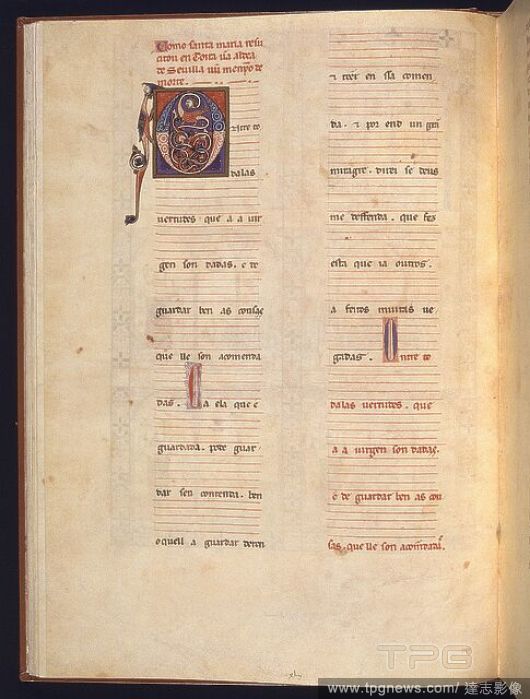 Como santa maria resu
citou en Coira ũa aldea
de Sevilla un menỹo de
morte.
Entre to
dalas
uertudes que a a uir
gen son dadas. e de
guardar ben as cousas
que lle son acomenda
das. Ca ela que é
guardada. pode guar
dar sen contenda. ben
o quell a guardar deren
e teer en ssa comen
da. e por end un gran
miragre. direi se deus
me deffenda. que fez
esta que ia outros.
a feitos muitas ue
gadas. Entre to
dalas uertudes. que
a a uirgen son dadas.
é de guardar ben as cou
sas. que lle son acomẽdadas.
TPG
www.tpgnews.com / 達志影像